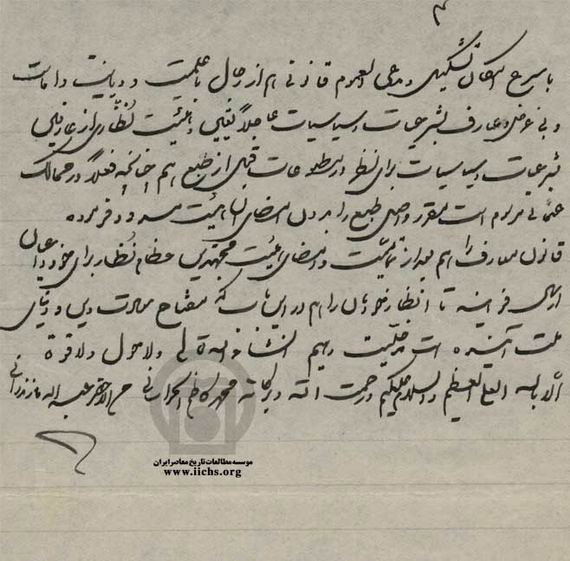 ۳
با سرع امکان تشکیل و مدعی العموم قانونی هم از رجال با علمیت و دیانت و امانت
و بی غرض و عارف بشرعیات و سیاسیات عاجلاً تعیین و هیئت نظاری از عارفین
بشرعیات و سیاسیات برای نظر در مطبوعات قبل از طبع هم چنانچه فعلاً در ممالک
عثمانی مرسوم است مقرر و اصل طبع را بدون امضای آن هیئت مسدود فرموده
قانون معارف را هم بعد از تمامیت و امضای هیئت مجتهدین عظام نظار برای خود داعیان
ارسال فرمایند تا انظار خودمان را هم در این باب که مفتاح سعادت دین و دنیای
ملت آینده است مدخلیت دهیم انشاء الله تعالی ولا حول ولا قوة
الا بالله العلی العظیم والسلام علیکم ورحمت الله وبرکاته محمد کاظم الخراسانی من الاحقر عبدالله مازندرانی
موسسه مطالعات تاریخ معاصر ایران
www.iichs.org